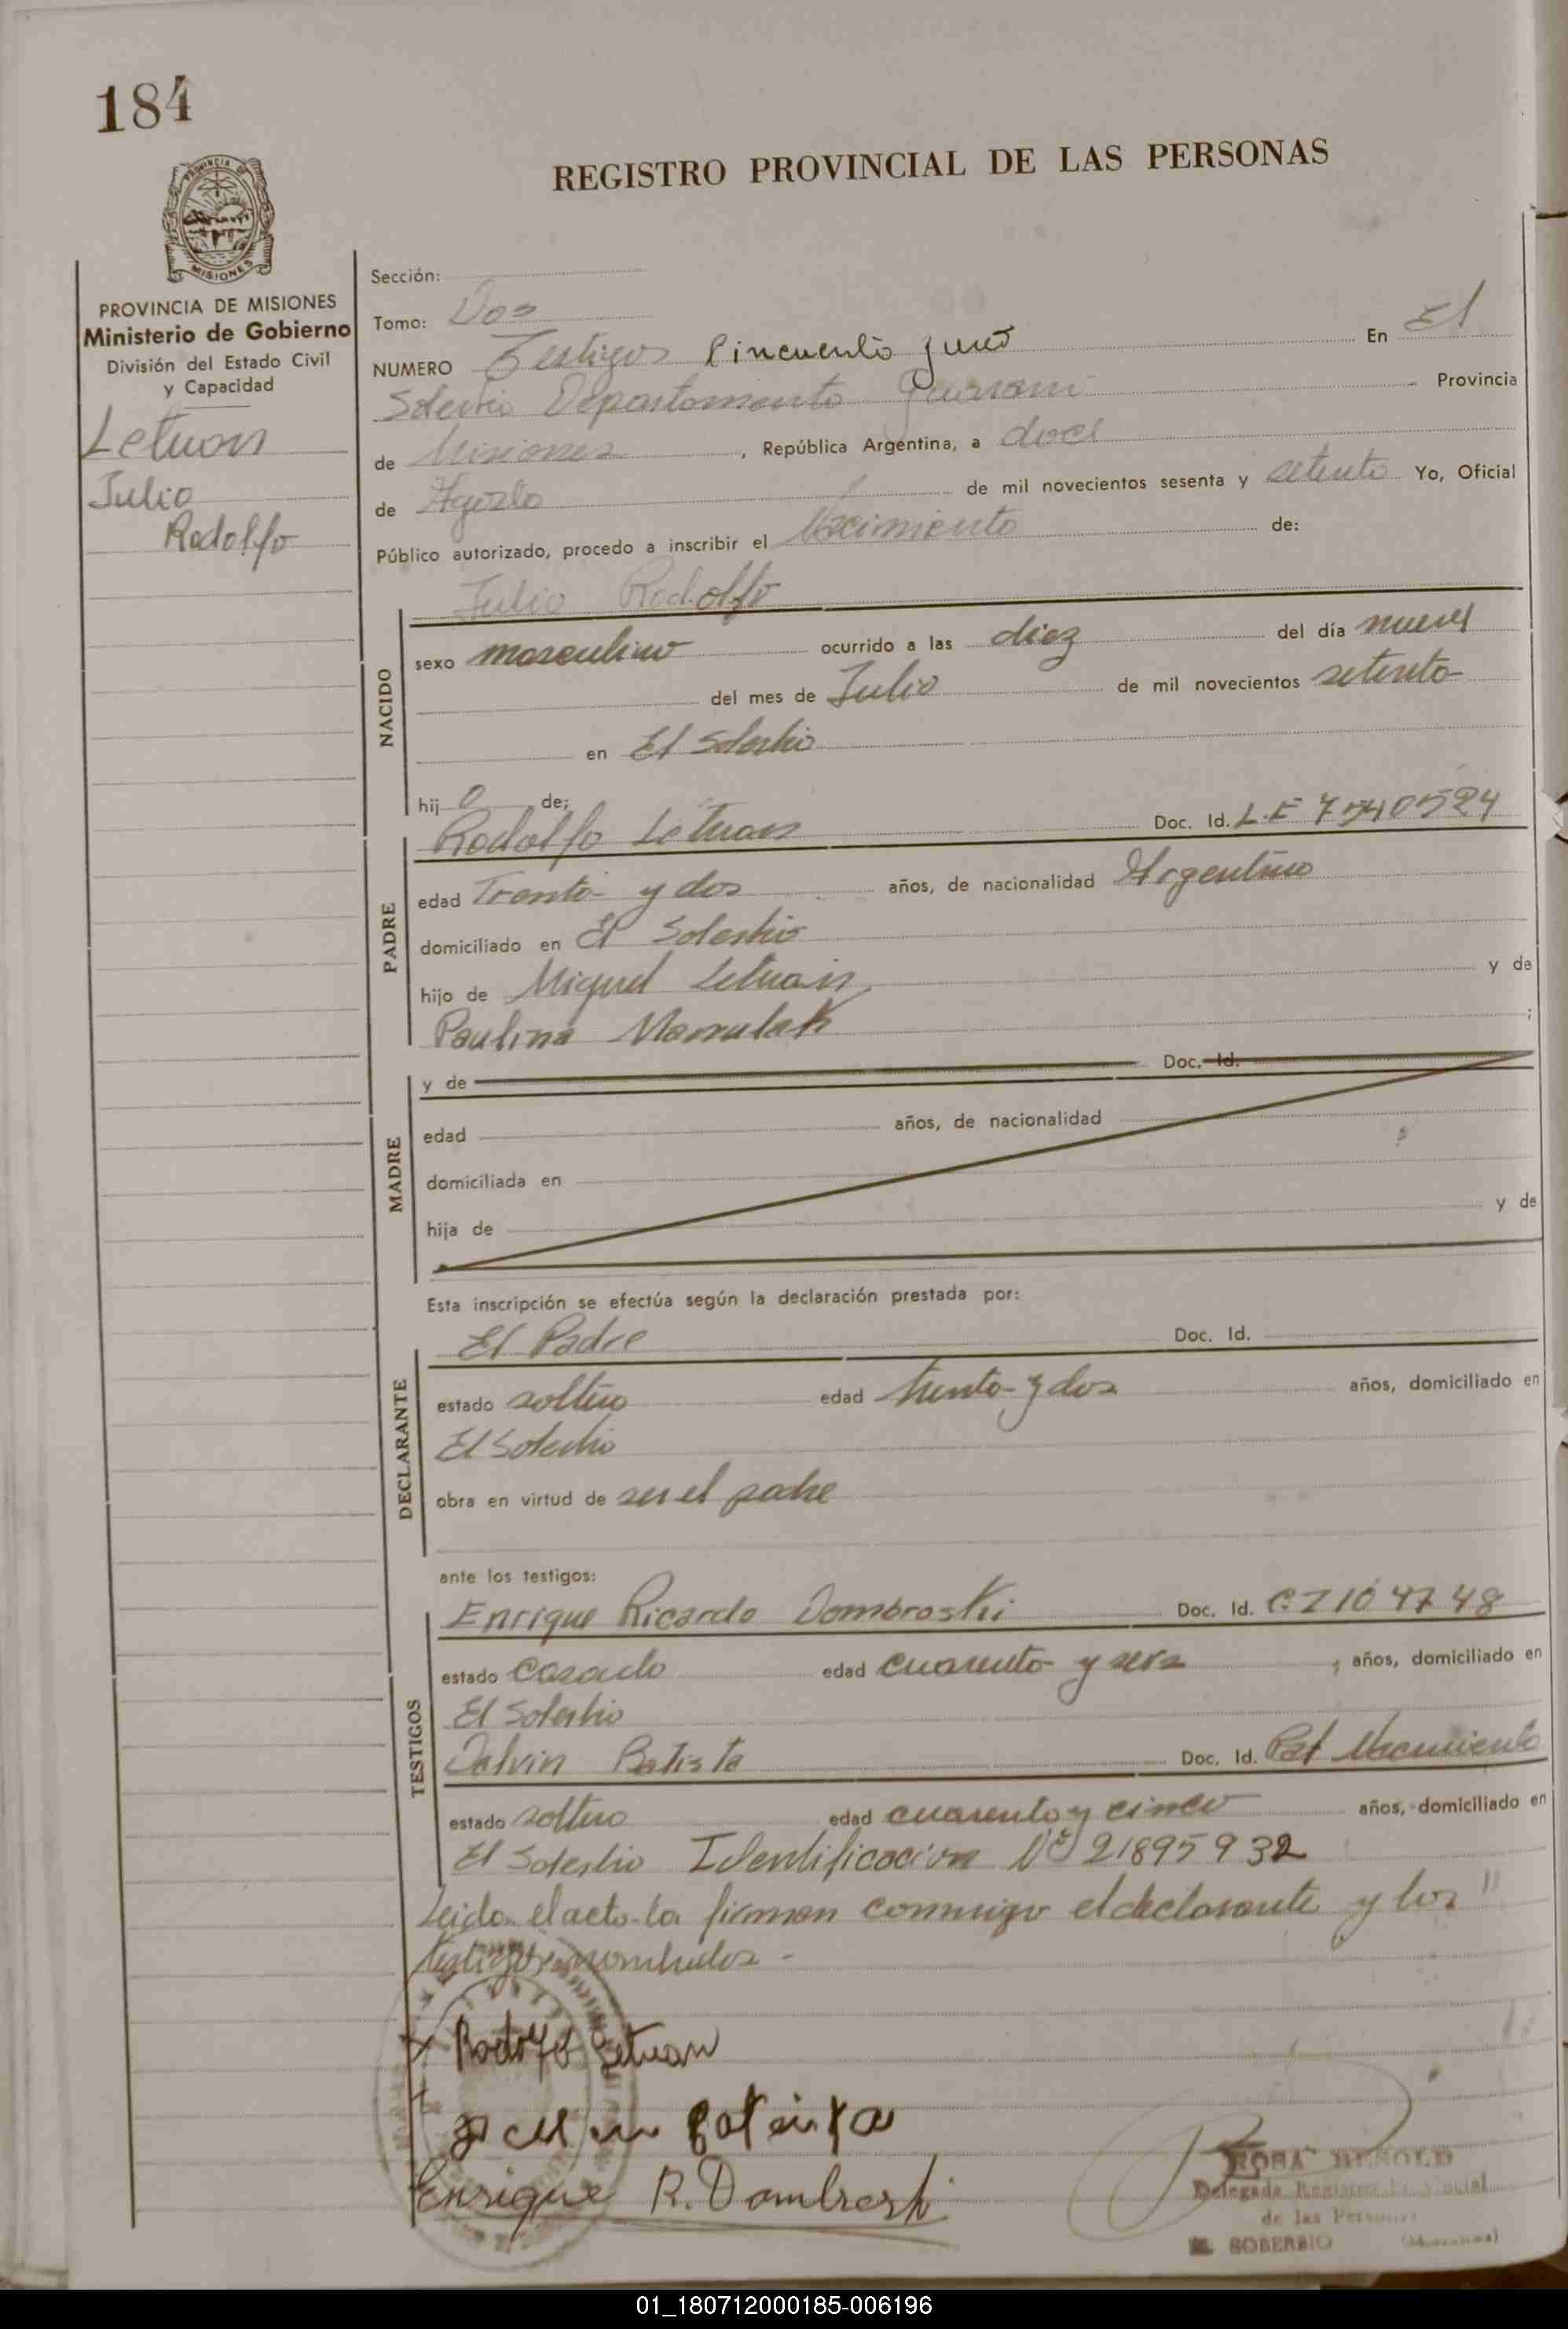 184
PROVINCIA DE
MISIONES
REGISTRO PROVINCIAL DE LAS PERSONAS
PROVINCIA DE MISIONES
Ministerio de Gobierno
División del Estado Civil
y Capacidad
Letuan
Julio
Rodolfo
Sección:
Tomo: Dos
NUMERO Cincuenta y uno En El
Soberbio Departamento Guarani Provincia
de Misiones, República Argentina, a doce
de Agosto de mil novecientos sesenta y setenta Yo, Oficial
Público autorizado, procedo a inscribir el Nacimiento de:
Julio Rodolfo
NACIDO
sexo masculino ocurrido a las diez del día nueve
del mes de Julio de mil novecientos setenta
en El Soberbio
hijo de;
PADRE
Rodolfo Letuan Doc. Id. L.E 7540524
edad Trenta y dos años, de nacionalidad Argentino
domiciliado en El Soberbio
hijo de Miguel Letuan y de
Paulina Marrulak ;
MADRE
y de Doc. Id.
edad años, de nacionalidad
domiciliada en
hija de y de
Esta inscripción se efectúa según la declaración prestada por:
DECLARANTE
El Padre Doc. Id.
estado soltero edad treinta y dos años, domiciliado en
El Soberbio
obra en virtud de ser el padre
ante los testigos:
TESTIGOS
Enrique Ricardo Dombroski Doc. Id. CI 104748
estado Casado edad cuarenta y seis, años, domiciliado en
El Soberbio
Dalvin Batista Doc. Id. Nacimiento
estado soltero edad cuarenta y cinco años, domiciliado en
El Soberbio Identificacion Nº 21895932
Leida el acta la firman conmigo el declarante y los "
testigos nombrados -
Rodolfo Letuan
Batista
Enrique R. Dombroski
ROSA BENOLD
Delegada Registro Provincial
de las Personas
EL SOBERBIO (Misiones)
01_180712000185-006196